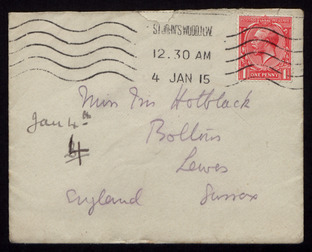 ST JOHN'S WOOD. N.W.
12.30 AM
4 JAN 15
ONE PENNY
Miss Iris Holblack
Jan 4th
4
Lewes
England Sussex